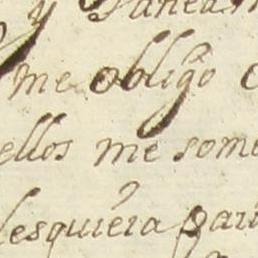 y
me obligo
ellos me some
lesquiera par